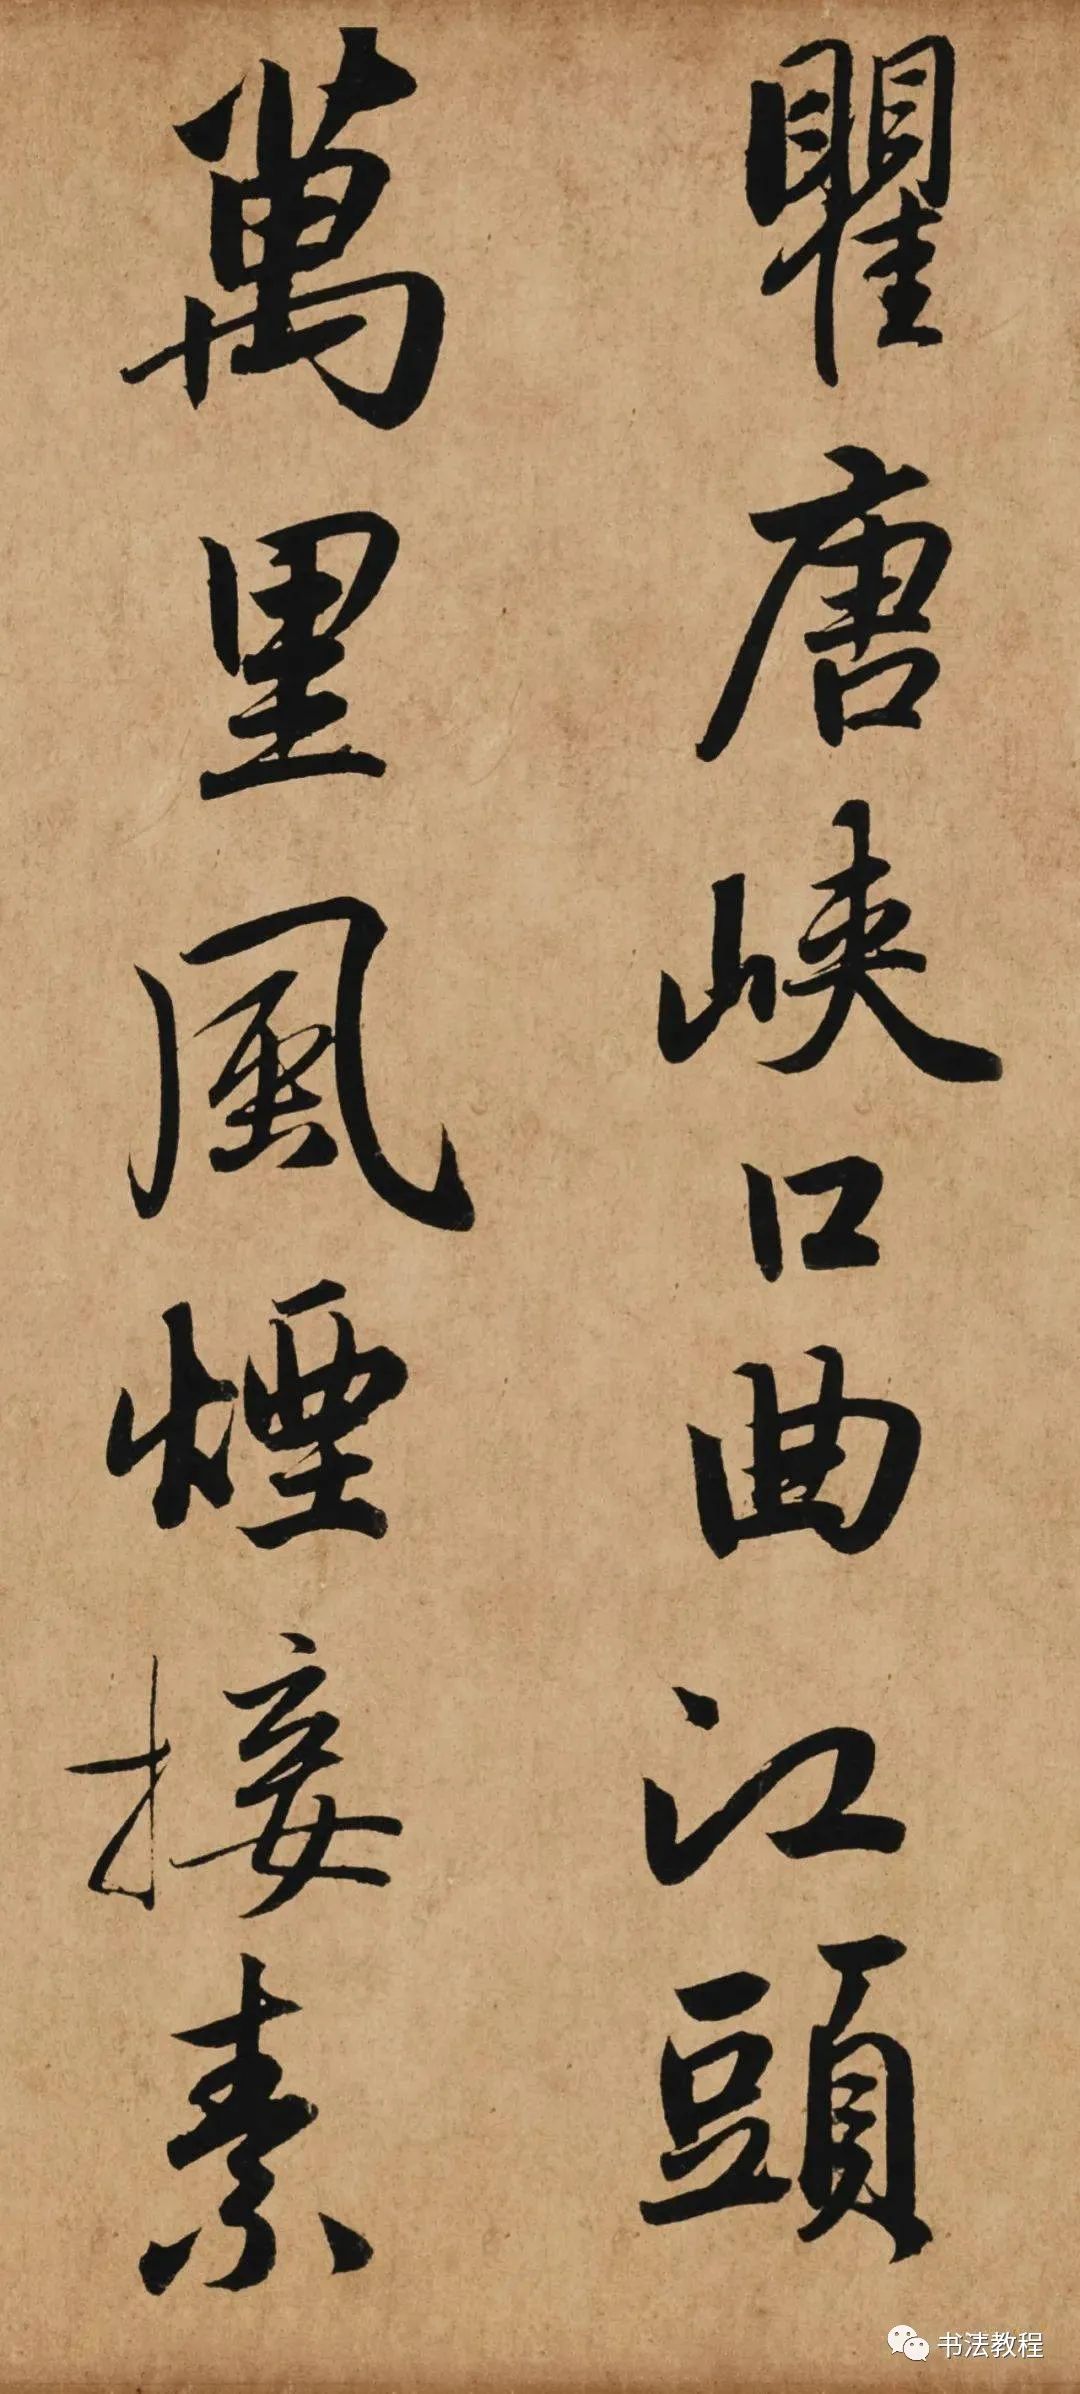 瞿唐峽口曲江頭
萬里風煙接素
书法教程